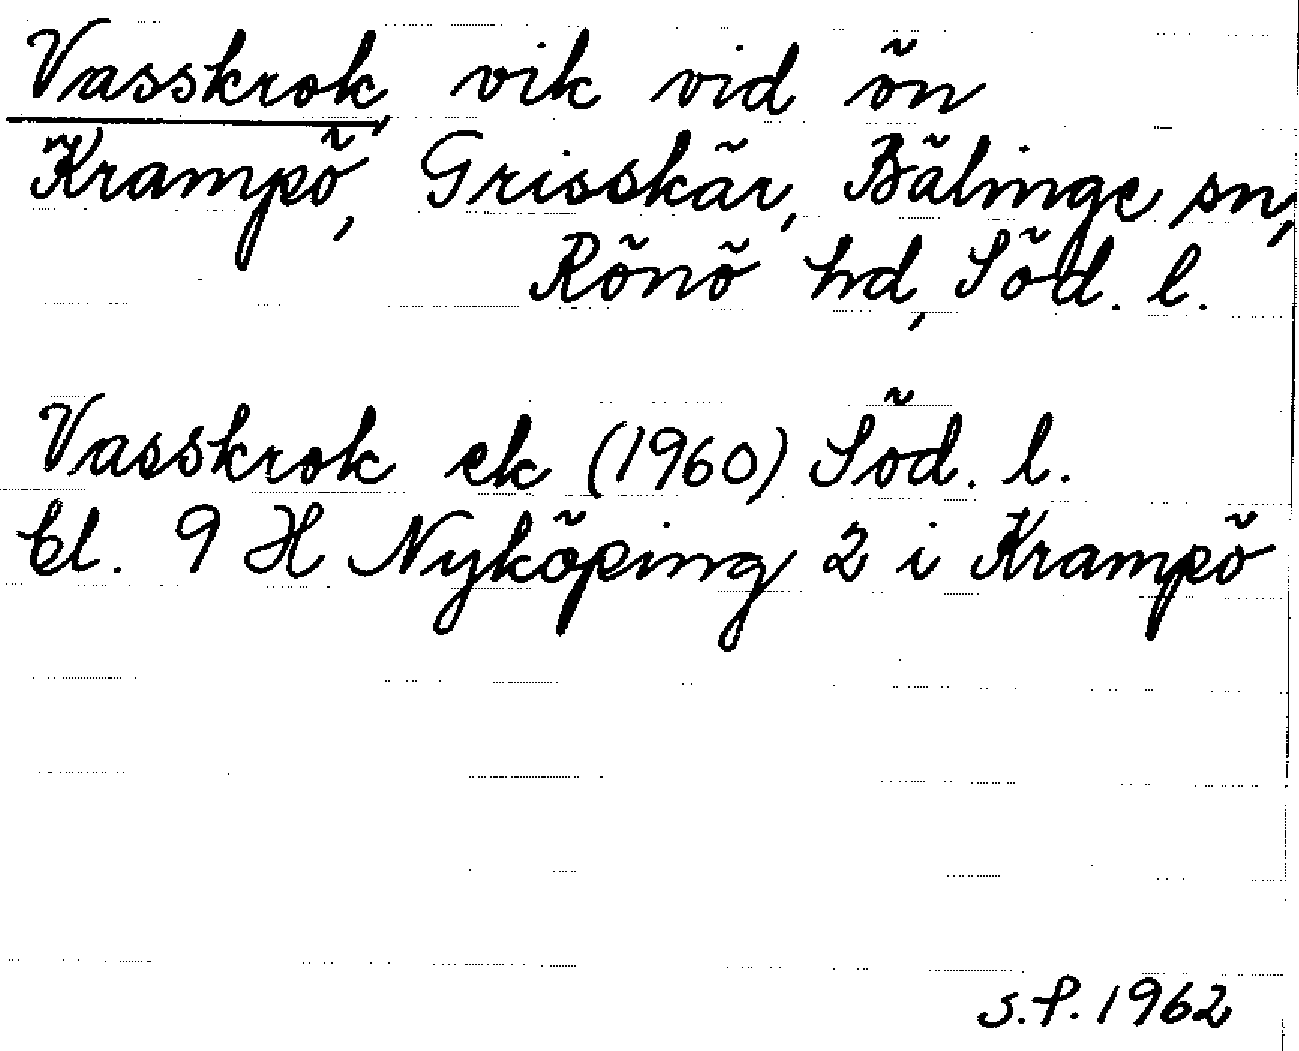 Vasskrok, vik vid ön
Krampö, Grisskär, Bälinge sn,
Rönö hd, Söd. l.
Vasskrok ek (1960) Söd. l.
bl. 9 H Nyköping 2 i Krampö
S.P. 1962